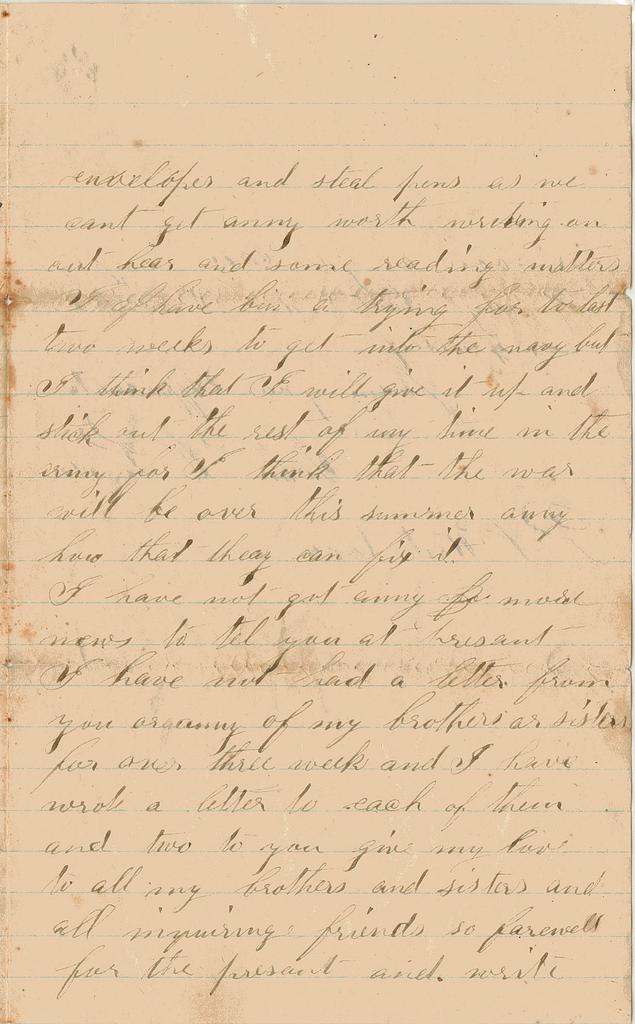 envelopes and steal pens as we
cant get anny worth writing on
out hear and some reading matters
I have bin a trying for to last
two weeks to get into the navy but
I think that I will give it up and
stick out the rest of my time in the
army for I think that the war
will be over this summer anny
how that theay can fix it.
I have not got anny more
news to tel you at presant
I have not had a letter from
you or anny of my brothers or sisters
for over three week and I have
wrote a letter to each of them
and two to you give my love
to all my brothers and sisters and
all inquiring friends so farewell
for the presant and write